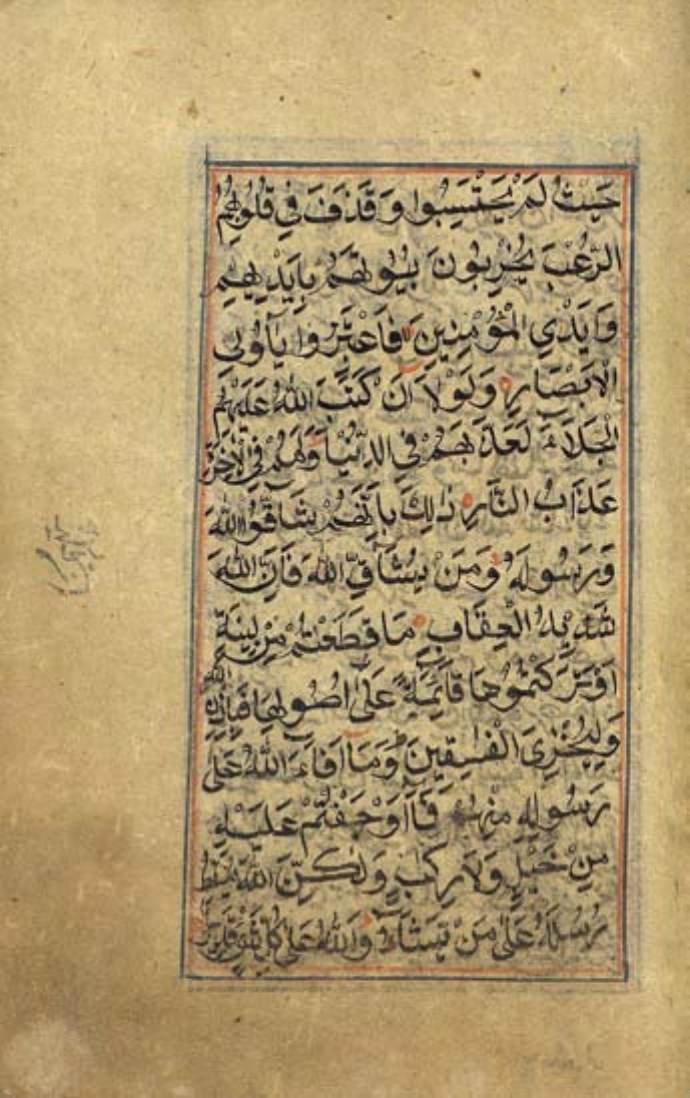 حَيْثُ لَمْ يَحْتَسِبُوا وَقَذَفَ فِي قُلُوبِهِمُ
الرُّعْبَ يُخْرِبُونَ بُيُوتَهُمْ بِأَيْدِيهِمْ
وَأَيْدِي الْمُؤْمِنِينَ فَاعْتَبِرُوا يَا أُولِي
الْأَبْصَارِ وَلَوْلَا أَنْ كَتَبَ اللهُ عَلَيْهِمُ
الْجَلَاءَ لَعَذَّبَهُمْ فِي الدُّنْيَا وَلَهُمْ فِي الْآخِرَةِ
عَذَابُ النَّارِ ذٰلِكَ بِأَنَّهُمْ شَاقُّوا اللهَ
وَرَسُولَهُ وَمَنْ يُشَاقِّ اللهَ فَإِنَّ اللهَ
شَدِيدُ الْعِقَابِ مَا قَطَعْتُمْ مِنْ لِينَةٍ
أَوْ تَرَكْتُمُوهَا قَائِمَةً عَلَىٰ أُصُولِهَا فَبِإِذْنِ اللهِ
وَلِيُخْزِيَ الْفٰسِقِينَ وَمَا أَفَاءَ اللهُ عَلَىٰ
رَسُولِهِ مِنْهُمْ فَمَا أَوْجَفْتُمْ عَلَيْهِ
مِنْ خَيْلٍ وَلَا رِكَابٍ وَلٰكِنَّ اللهَ يُسَلِّطُ
رُسُلَهُ عَلَىٰ مَنْ يَشَاءُ وَاللهُ عَلَىٰ كُلِّ شَيْءٍ قَدِيرٌ